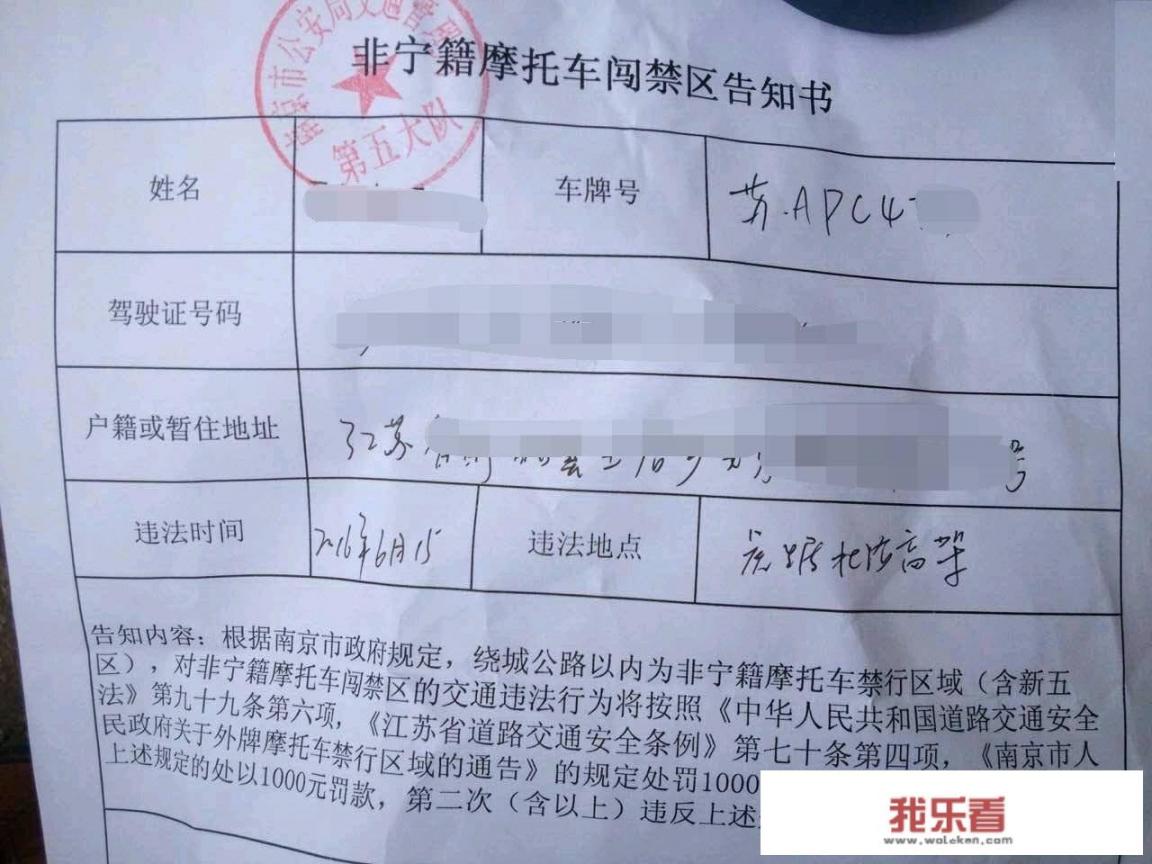 南京市公安局交通管理
第五大队
非宁籍摩托车闯禁区告知书
姓名 车牌号 苏.APC4
驾驶证号码
户籍或暂住地址 江苏 号
违法时间 2016年6月15 违法地点 高架
告知内容：根据南京市政府规定，绕城公路以内为非宁籍摩托车禁行区域（含新五
区），对非宁籍摩托车闯禁区的交通违法行为将按照《中华人民共和国道路交通安全
法》第九十九条第六项，《江苏省道路交通安全条例》第七十条第四项，《南京市人
民政府关于外牌摩托车禁行区域的通告》的规定处罚1000
上述规定的处以1000元罚款，第二次（含以上）违反上述
我乐看
www.woleken.com